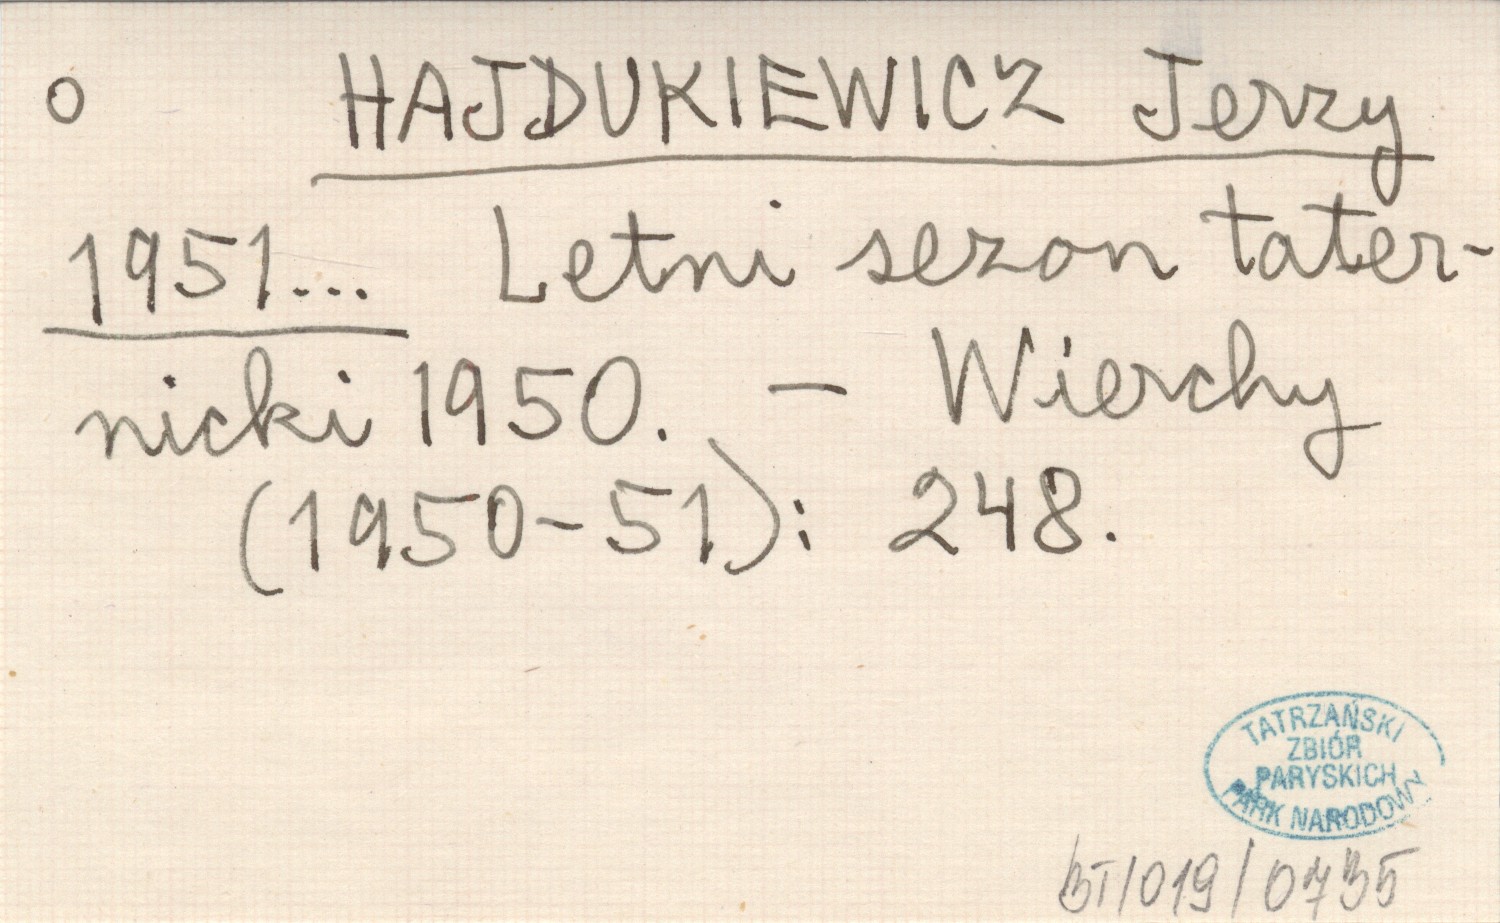 o HAJDUKIEWICZ Jerzy
1951... Letni sezon tater-
nicki 1950. – Wierchy
(1950-51): 248.
TATRZAŃSKI
ZBIÓR
PARYSKICH
PARK NARODOWY
BT/019/0735